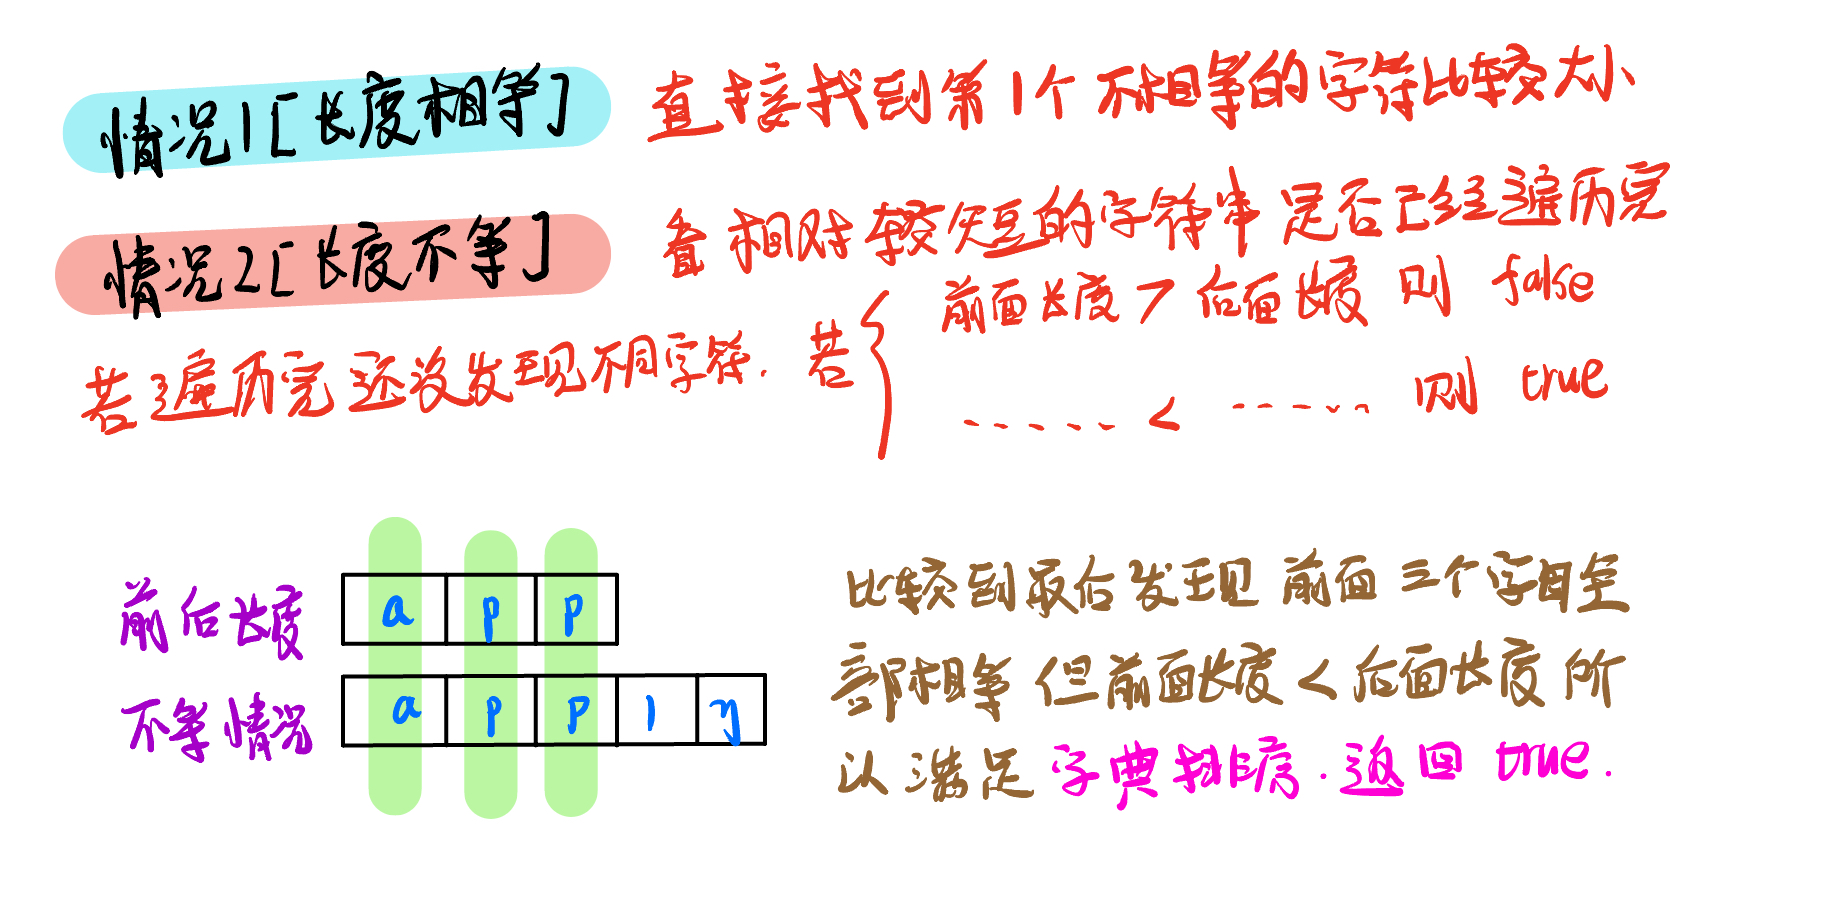 情况1[长度相等] 直接找到第1个不相等的字符比较大小
情况2[长度不等] 看相对较短的字符串是否已经遍历完
若遍历完还没发现不同字符. 若 { 前面长度 > 后面长度 则 false
..... < ..... 则 true
前后长度
不等情况
a p p
a p p l y
比较到最后发现前面三个字母全
部相等 但前面长度 < 后面长度 所
以满足字典排序. 返回 true.